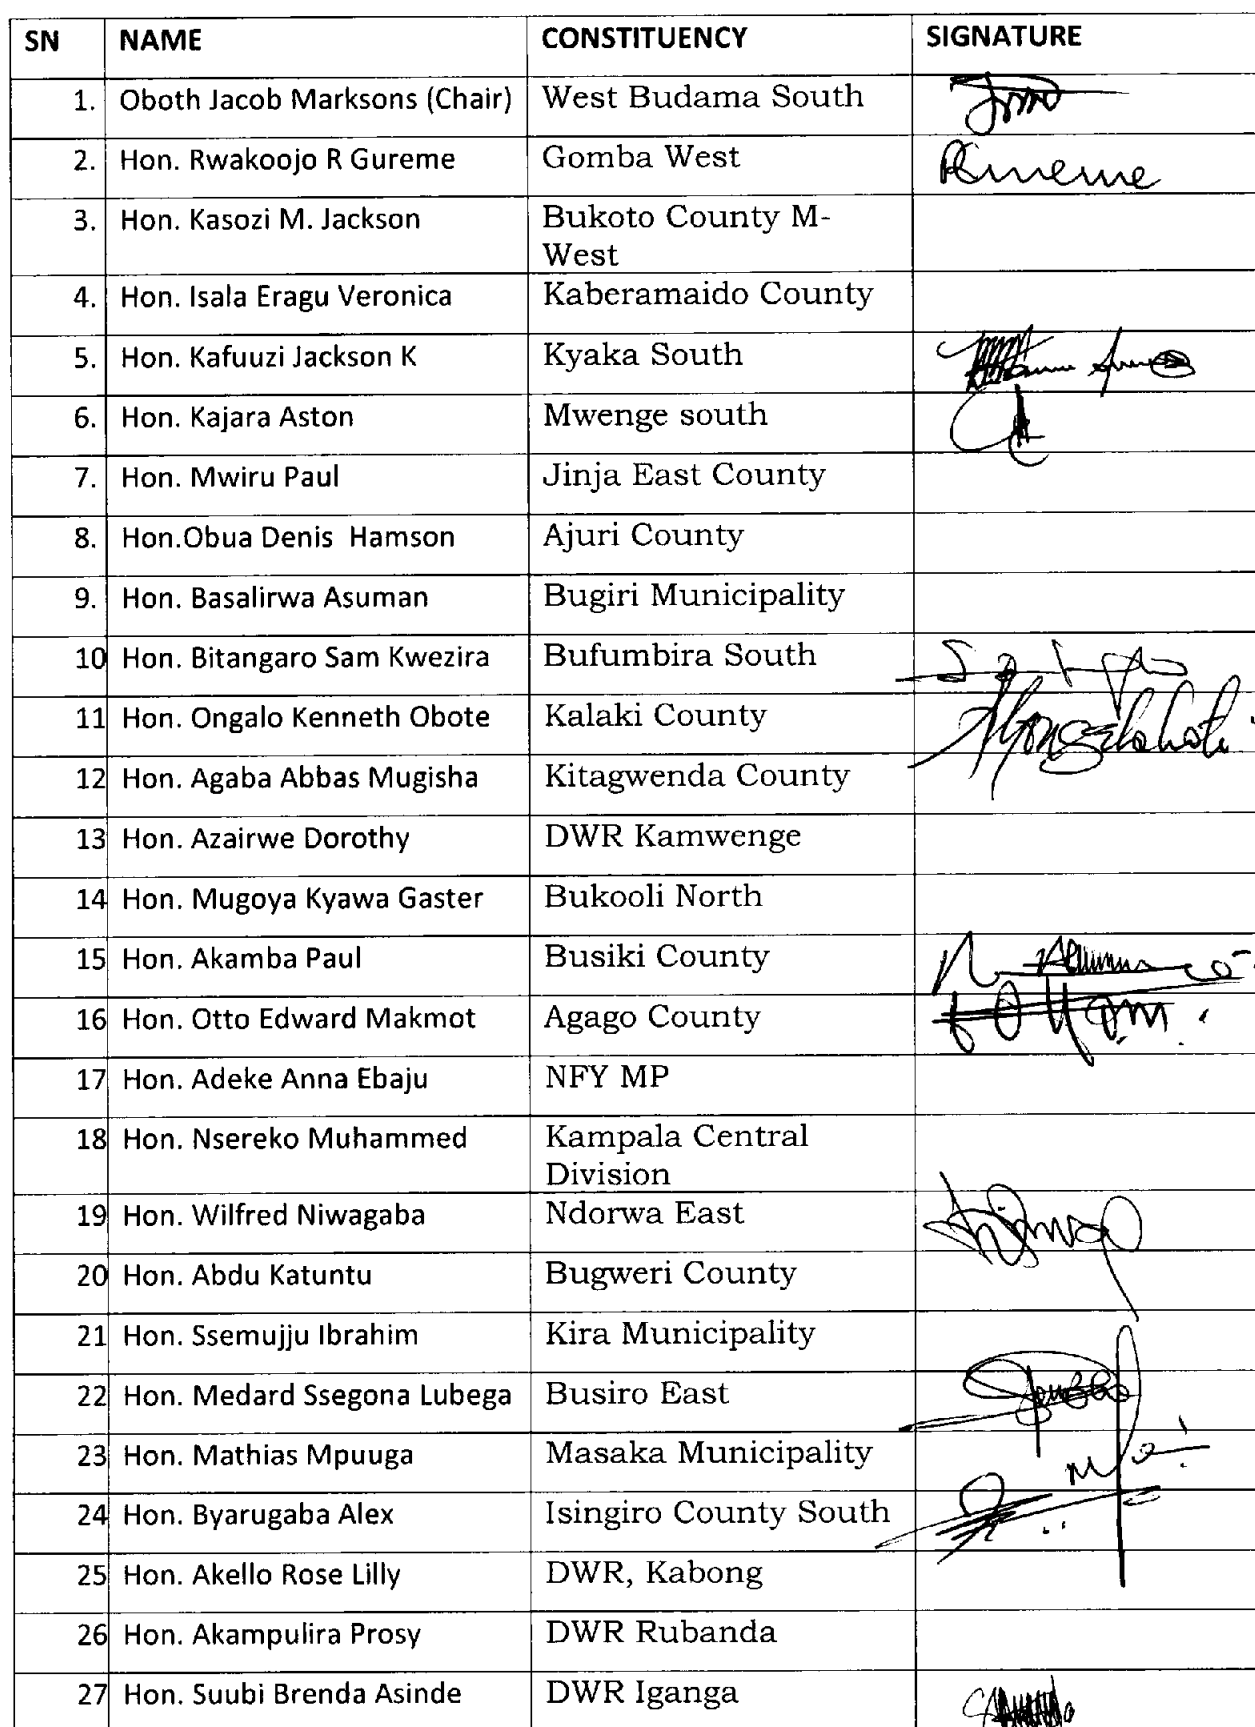 SN NAME CONSTITUENCY SIGNATURE
1. Oboth Jacob Marksons (Chair) West Budama South
2. Hon. Rwakoojo R Gureme Gomba West
3. Hon. Kasozi M. Jackson Bukoto County M-
West
4. Hon. Isala Eragu Veronica Kaberamaido County
5. Hon. Kafuuzi Jackson K Kyaka South
6. Hon. Kajara Aston Mwenge south
7. Hon. Mwiru Paul Jinja East County
8. Hon.Obua Denis Hamson Ajuri County
9. Hon. Basalirwa Asuman Bugiri Municipality
10 Hon. Bitangaro Sam Kwezira Bufumbira South
11 Hon. Ongalo Kenneth Obote Kalaki County
12 Hon. Agaba Abbas Mugisha Kitagwenda County
13 Hon. Azairwe Dorothy DWR Kamwenge
14 Hon. Mugoya Kyawa Gaster Bukooli North
15 Hon. Akamba Paul Busiki County
16 Hon. Otto Edward Makmot Agago County
17 Hon. Adeke Anna Ebaju NFY MP
18 Hon. Nsereko Muhammed Kampala Central
Division
19 Hon. Wilfred Niwagaba Ndorwa East
20 Hon. Abdu Katuntu Bugweri County
21 Hon. Ssemujju Ibrahim Kira Municipality
22 Hon. Medard Ssegona Lubega Busiro East
23 Hon. Mathias Mpuuga Masaka Municipality
24 Hon. Byarugaba Alex Isingiro County South
25 Hon. Akello Rose Lilly DWR, Kabong
26 Hon. Akampulira Prosy DWR Rubanda
27 Hon. Suubi Brenda Asinde DWR Iganga